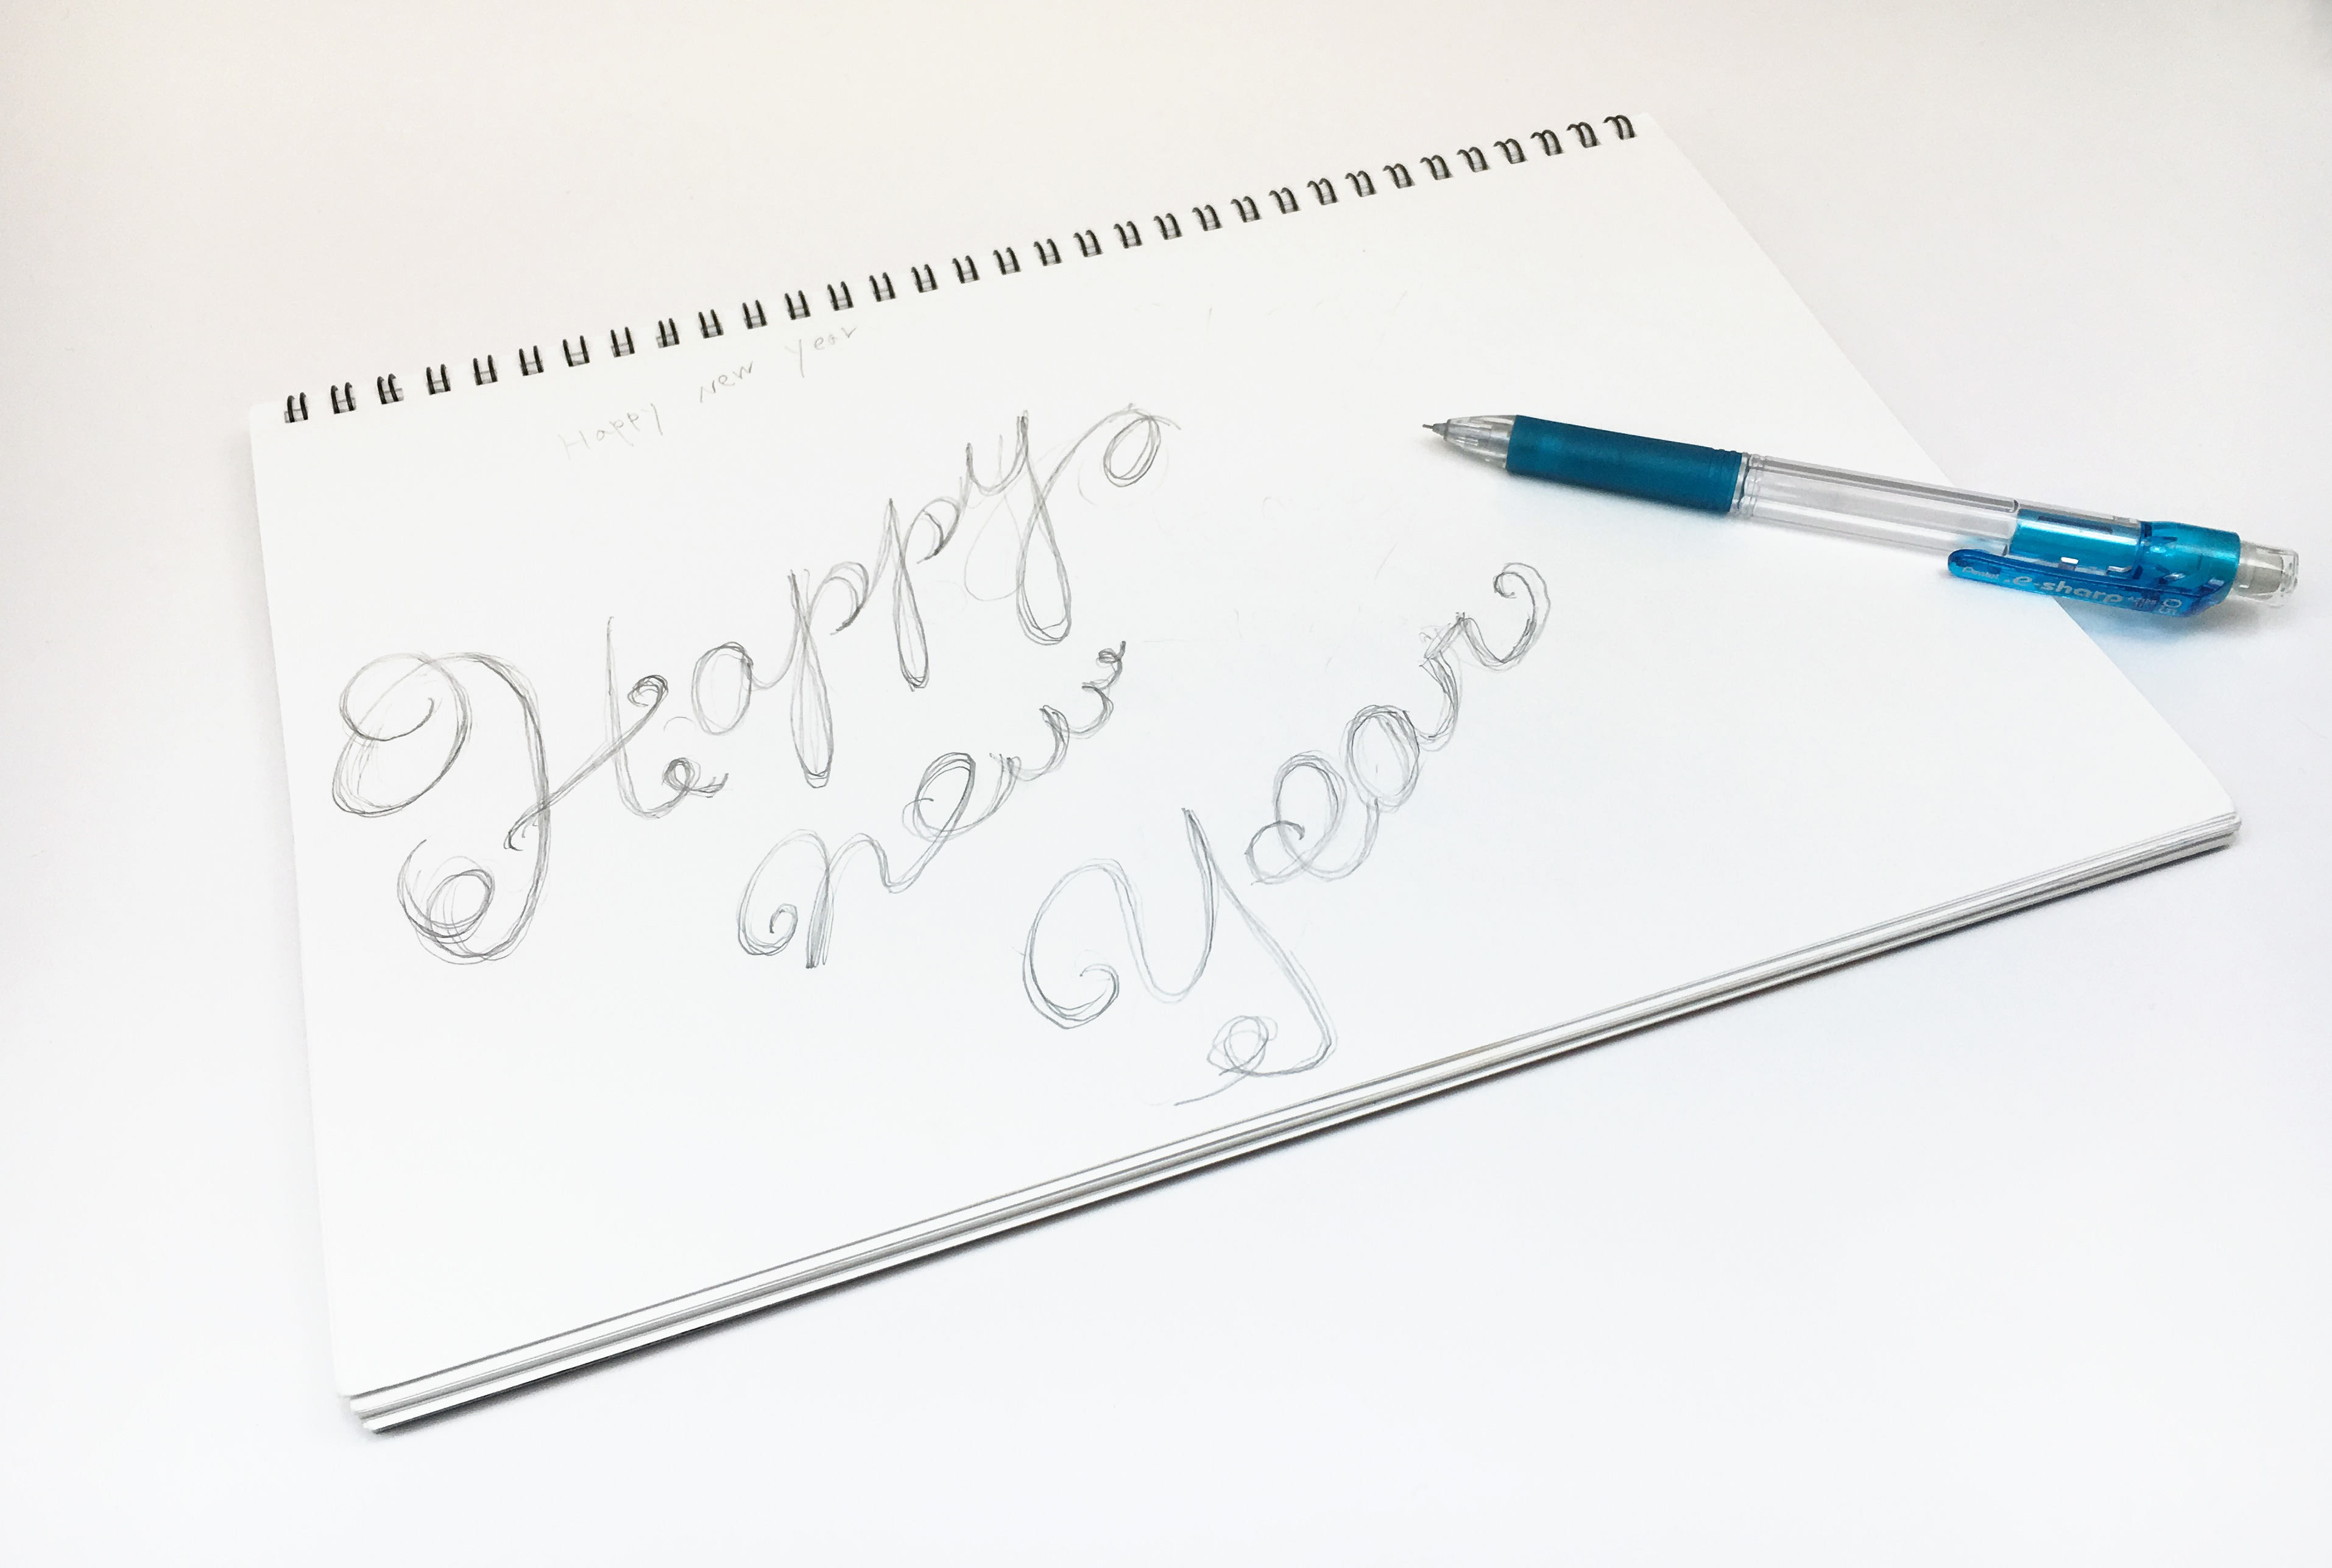 Happy new year
Happy
new
year
Pentel e-sharp